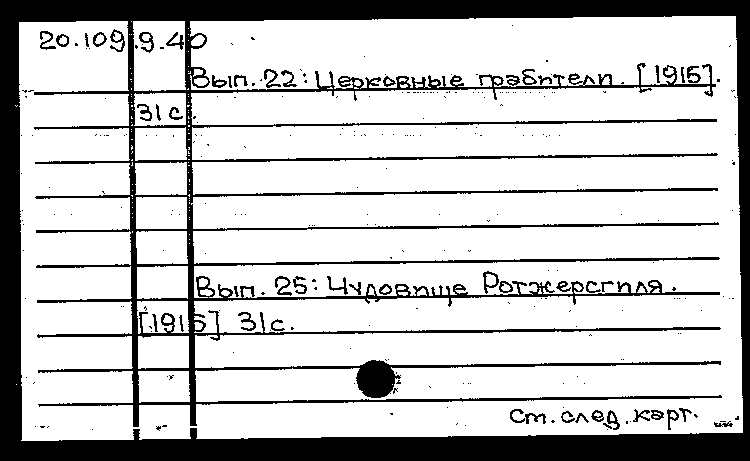 20.109.9.40
Вып. 22: Церковные грабители. [1915].
31 с.
Вып. 25: Чудовище Ротжерсгиля.
[1915] 31 с.
См. след. карт.